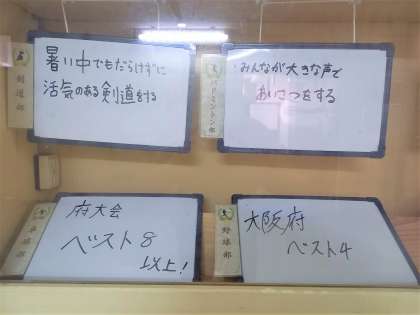 剣道部
暑い中でもだらけずに
活気のある剣道をする
バドミントン部
・みんなが大きな声で
あいさつをする
卓球部
府大会
ベスト8
以上!
野球部
大阪府
ベスト4